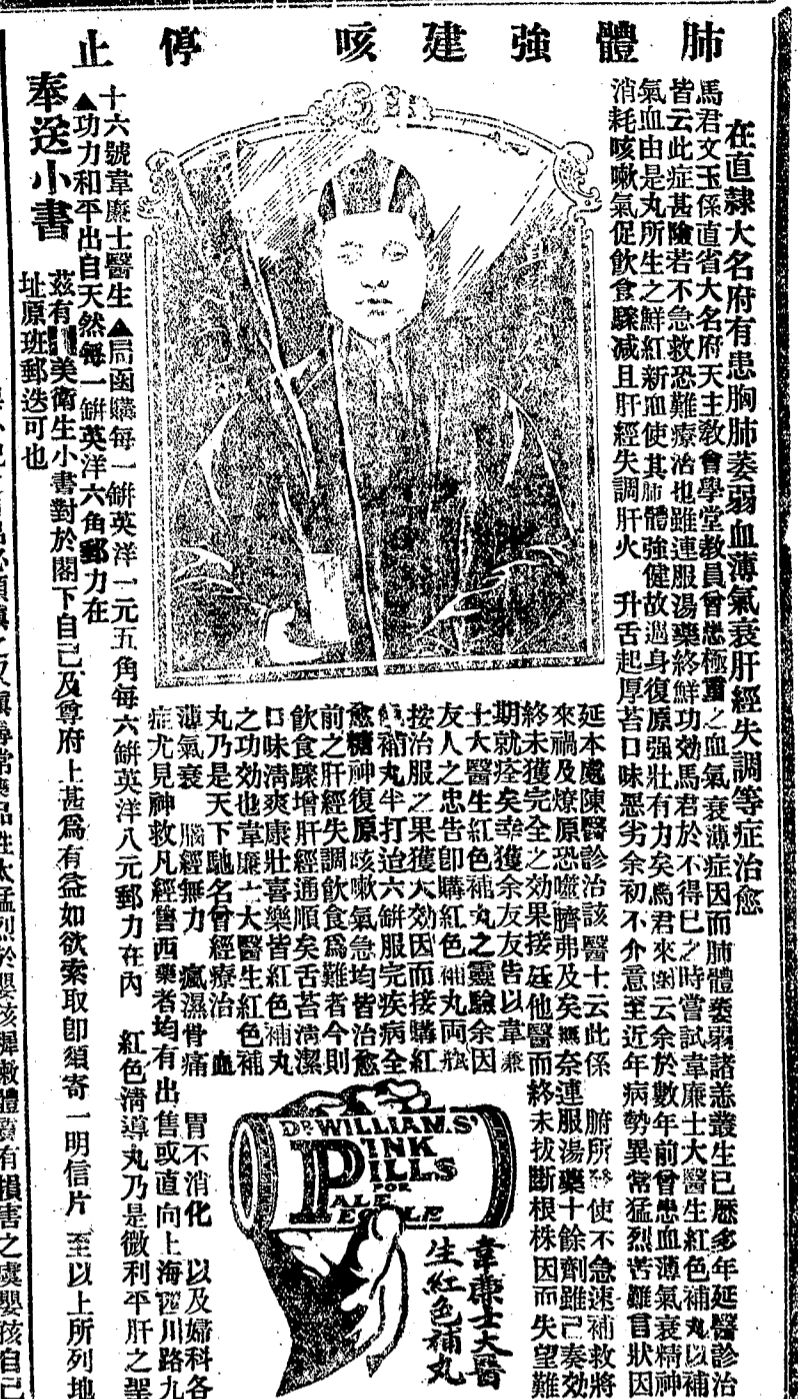 肺體強建咳停止
在直隸大名府有患胸肺萎弱血薄氣衰肝經失調等症治愈
馬君文玉係直省大名府天主教會學堂教員曾患極重之血氣衰薄症因而肺體萎弱諸恙叢生已歷多年延醫診治
皆云此症甚險若不急救恐難療治也雖連服湯藥終鮮功効馬君於不得已之時嘗試韋廉士大醫生紅色補丸以補
氣血由是丸所生之鮮紅新血使其肺體強健故週身復原强壯有力矣馬君來函云余於數年前曾患血薄氣衰精神
消耗咳嗽氣促飲食驟减且肝經失調肝火 升舌起厚苔口味惡劣余初不介意至近年病勢異常猛烈苦難言狀因
延本處陳醫診治該醫士云此係 腑所發使不急速補救將
來禍及燎原恐噬臍弗及矣無奈連服湯藥十餘劑雖已奏効
終未獲完全之効果接延他醫而終未拔斷根株因而失望難
期就痊矣幸獲余友友告以韋廉
士大醫生紅色補丸之靈驗余因
友人之忠告即購紅色補丸両瓶
接治服之果獲大効因而接購紅
色補丸半打迨六缾服完疾病全
愈精神復原咳嗽氣急均皆治愈
前之肝經失調飲食爲難者今則
飲食驟增肝經通順矣舌苔清潔
口味清爽康壯喜樂皆紅色補丸
之功効也韋廉士大醫生紅色補
丸乃是天下馳名曾經療治 血
薄氣衰 腦經無力 瘋濕骨痛 胃不消化 以及婦科各
症尤見神救凡經售西藥者均有出售或直向上海四川路九
十六號韋廉士醫生▲局函購每一缾英洋一元五角每六缾英洋八元郵力在內 紅色清導丸乃是微利平肝之聖
▲功力和平出自天然每一缾英洋六角郵力在
奉送小書
茲有美衛生小書對於閣下自己及尊府上甚爲有益如欲索取即須寄一明信片 至以上所列地
址原班郵送可也
DR WILLIAMS'
PINK
PILLS
FOR
PALE
PEOPLE
韋廉士大醫
生紅色補丸